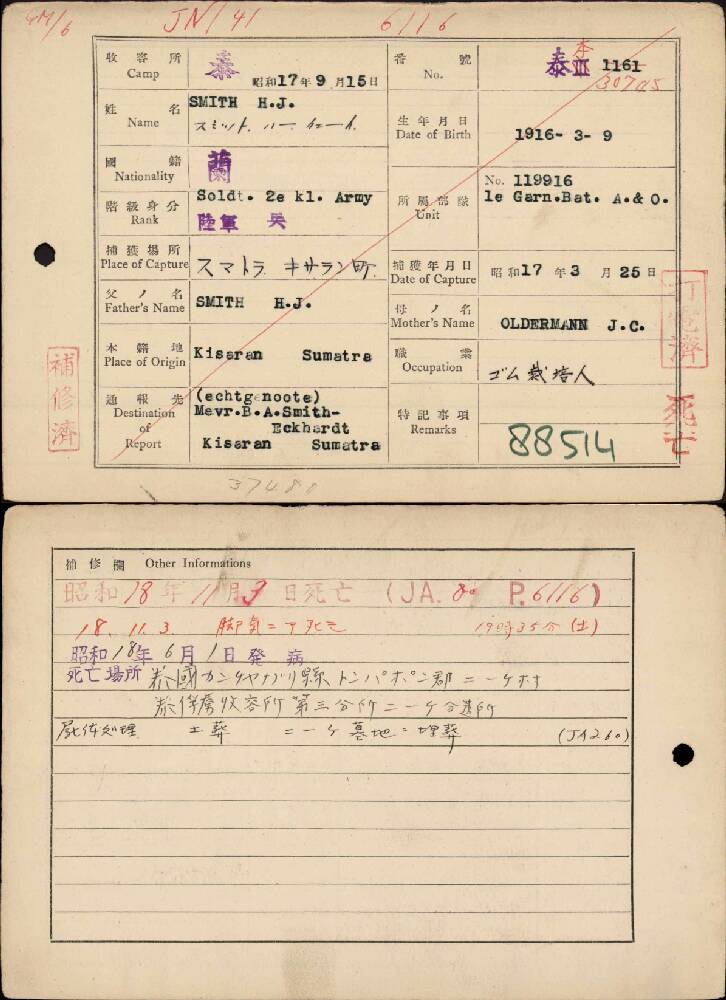 JN/41
6116
收容所 Camp 泰 昭和17年9月15日
番號 No. 泰III 1161
本 30705
姓名 Name SMITH H.J.
スミット. ハー. イェー.
生年月日 Date of Birth 1916-3-9
國籍 Nationality 蘭
階級身分 Rank Soldt. 2e kl. Army
陸軍 兵
所屬部隊 Unit No. 119916
1e Garn.Bat. A.& O.
捕獲場所 Place of Capture スマトラ キサラン町
捕獲年月日 Date of Capture 昭和17年3月25日
父ノ名 Father's Name SMITH H.J.
母ノ名 Mother's Name OLDERMANN J.C.
本籍地 Place of Origin Kisaran Sumatra
職業 Occupation ゴム栽培人
通報先 Destination of Report (echtgenoote)
Mevr.B.A.Smith-
Eckhardt
Kisaran Sumatra
特記事項 Remarks 88514
補修濟
打電濟
死亡
37480
補修欄 Other Informations
昭和18年11月3日死亡 (JA. 80 P.6116)
18.11.3. 脚氣ニテ死亡 19時35分
昭和18年6月1日発病
死亡場所 泰國カンチャナブリ縣トンパポン郡ニーケ村
泰俘虜收容所第三分所ニーケ分遣所
屍体処理 土葬 ニーケ墓地ニ埋葬 (JA260)